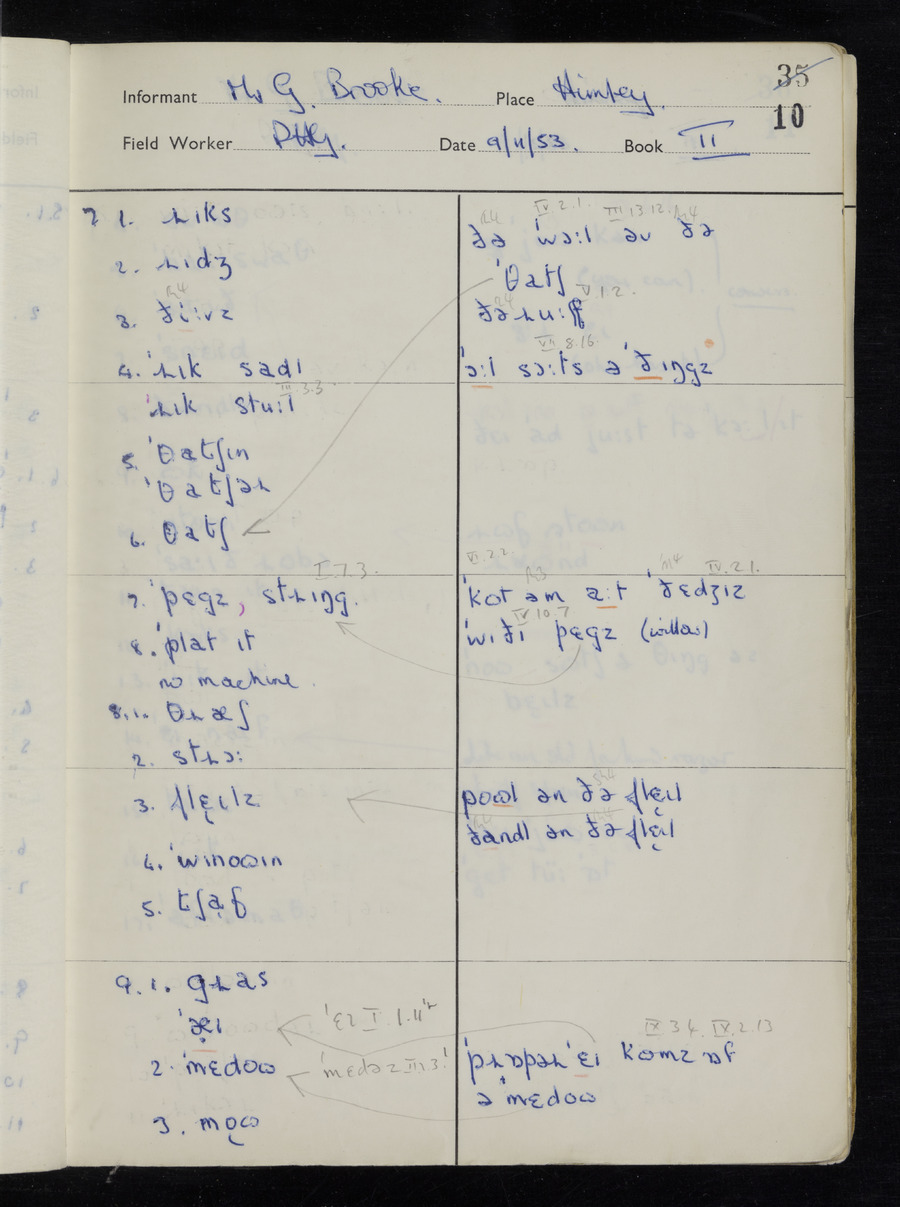 35
10
Informant Mr G. Brooke. Place Himley.
Field Worker PHG. Date 9/11/53. Book II
7 1. ɹɪks
2. ɹɪdʒ
R4
3. ðiːvz
4. ˈɹɪk sadl
ˈɹɪk stuːl III.3.3
5. ˈθatʃɪn
ˈθatʃəɹ
6. θatʃ
7. ˈpɛgz, stɹɪŋg. I.7.3.
8. ˈplat ɪt
no machine.
8.1. θɹæʃ
2. stɹɔː
3. flɛɪlz
4. ˈwɪnoωɪn
5. tʃaf
9.1. gɹas
ˈæɪ ˈɛɪ I.1.11
2. ˈmɛdoω ˈmedəz II.1.3
3. moω
R4 IV.2.1. III.13.12. R4
ðə ˈwɔːl əv ðə
ˈθatʃ V.1.2.
R4
ðə ɹuːf
VII.8.16.
ˈɔːl sɔːts ə ˈðɪŋgz
VI.2.2 R3 R4 IV.2.1.
ˈkɒt əm aːt ˈðɛdʒɪz
IV.10.7
ˈwɪði pɛgz (willow)
poωl ən ðə flɛɪl
ðandl ən ðə flɛɪl
IX.3.4. IV.2.13
ˈpɹɒpəɹ ˈɛɪ kɒmz ɒf
ə ˈmɛdoω